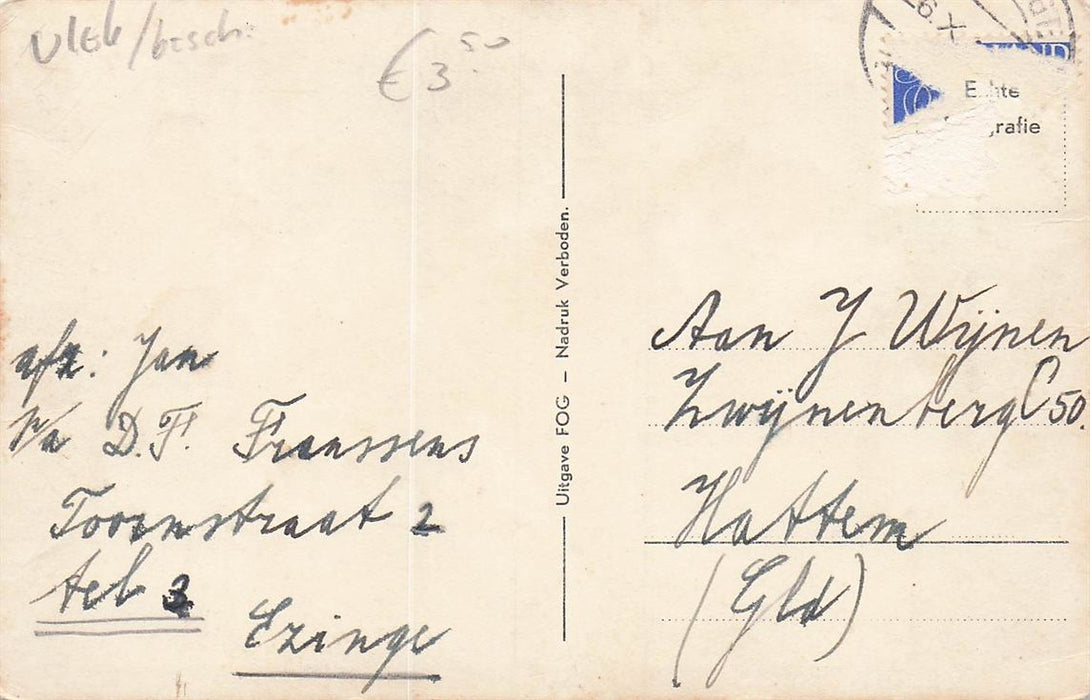 Vlek/besch.
€ 3.50
6.X
Echte
grafie
Uitgave FOG – Nadruk Verboden.
Aan J Wijnen
Zwijnenberg C 50.
Hattem
(Gld)
afz: Jan
p/a D.F. Franssens
Torenstraat 2
tel 3
Ezinge